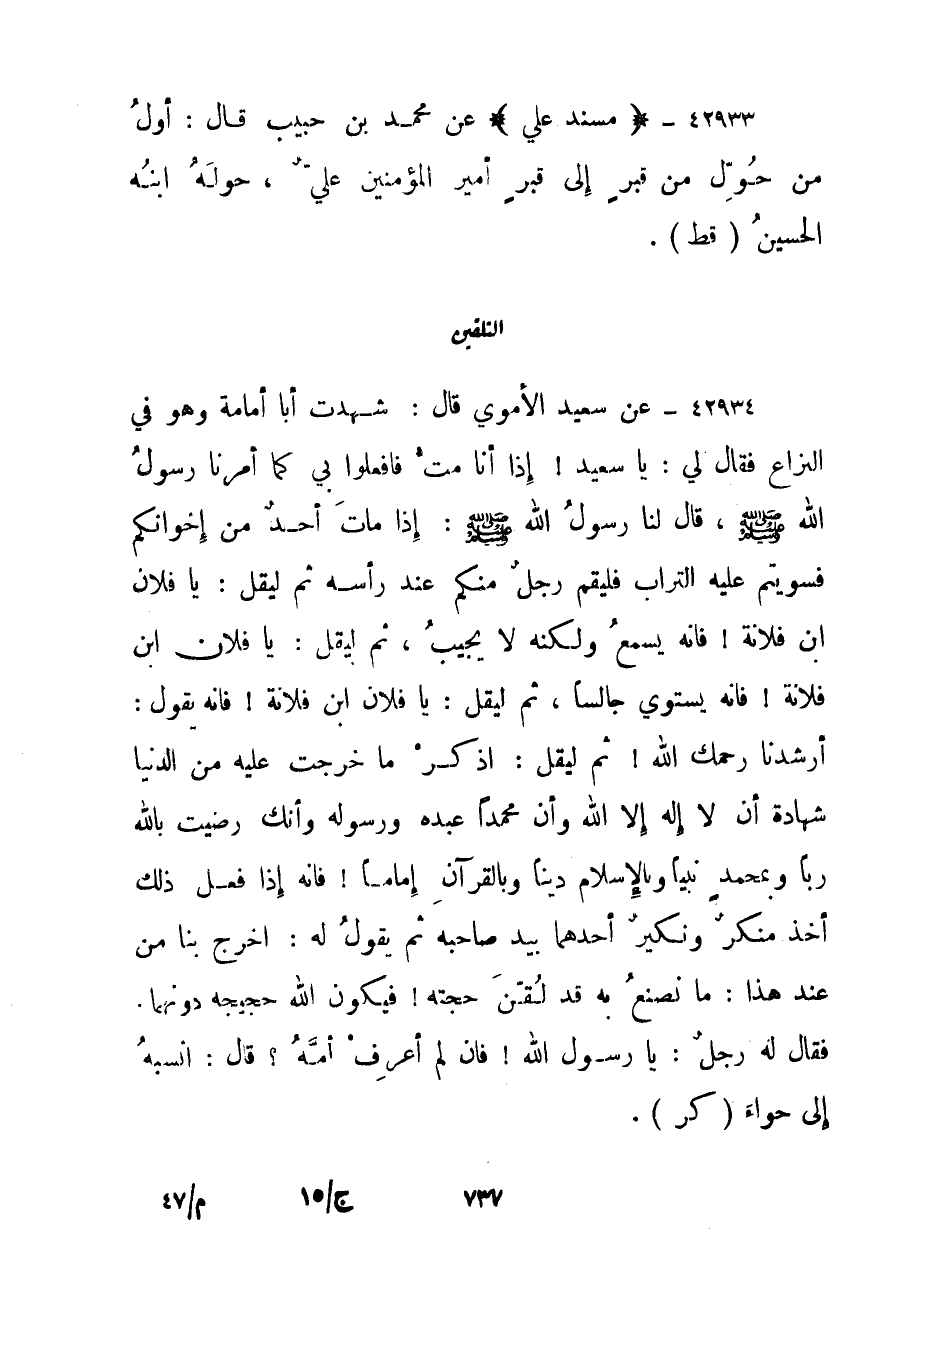 ٤٢٩٣٣ - ﴿ مسند علي ﴾ عن محمـد بن حبيب قـال : أولُ
من حُوِّل من قبرٍ إلى قبرٍ أمير المؤمنين عليّ ٌ ، حولَهُ ابنُه
الحسينُ ( قط ) .
التلقين
٤٢٩٣٤ - عن سعيد الأموي قال : شـهدت أبا أمامة وهو في
النزاع فقال لي : يا سعيد ! إذا أنا متْ فافعلوا بي كما أمرنا رسولُ
الله ﷺ ، قال لنا رسولُ الله ﷺ : إذا ماتَ أحـدٌ من إخوانكم
فسويتم عليه التراب فليقم رجلٌ منكم عند رأسـه ثم ليقل : يا فلان
ابن فلانة ! فانه يسمعُ ولكنه لا يجيبُ ، ثم ليقل : يا فلان ابن
فلانة ! فانه يستوي جالساً ، ثم ليقل : يا فلان ابن فلانة ! فانه يقول :
أرشدنا رحمك الله ! ثم ليقل : اذكـرْ ما خرجت عليه من الدنيا
شهادة أن لا إله إلا الله وأن محمداً عبده ورسوله وأنك رضيت بالله
رباً وبمحمدٍ نبياً وبالإسلام ديناً وبالقرآنِ إمامـاً ! فانه إذا فعـل ذلك
أخذ منكرٌ ونكيرٌ أحدهما بيد صاحبه ثم يقولُ له : اخرج بنا من
عند هذا : ما نصنعُ به قد لُقنّ َ حجته ! فيكون الله حجيجه دونهما .
فقال له رجلٌ : يا رسـول الله ! فان لم أعرِفْ أمَّهُ ؟ قال : انسبهُ
إلى حواءَ ( كر ) .
٧٣٧ ج/١٥ م/٤٧